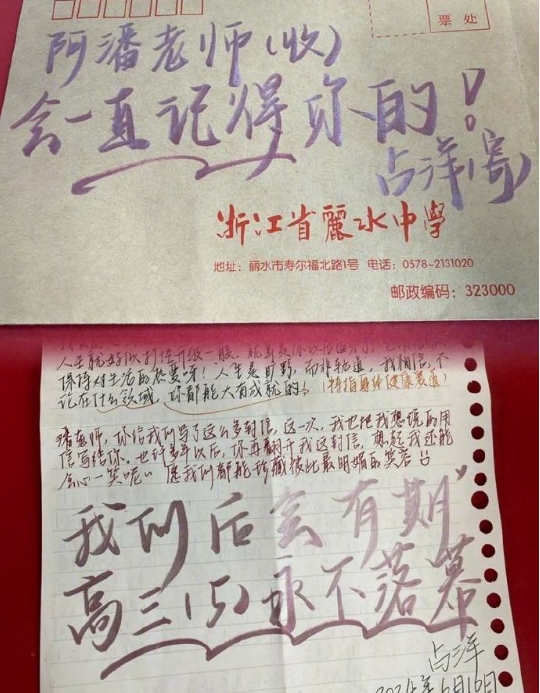 票处
阿潘老师(收)
会一直记得你的!
占洋(寄)
浙江省麗水中學
地址:丽水市寿尔福北路1号 电话:0578-2131020
邮政编码:323000
人生就好似打怪升级一般,就算
保持对生活的热爱呀!人生是旷野,而非轨道,我相信,不
论在什么领域,你都能大有成就的。(特指身体健康赛道)
潘老师,你给我们写了这么多封信,这一次,我也把我想说的用
信写给你。也许多年以后,你再翻开我这封信,想起我还能
会心一笑呢。愿我们都能珍藏彼此最明媚的笑容
我们后会有期
高三(5)永不落幕
占洋
2024年6月16日